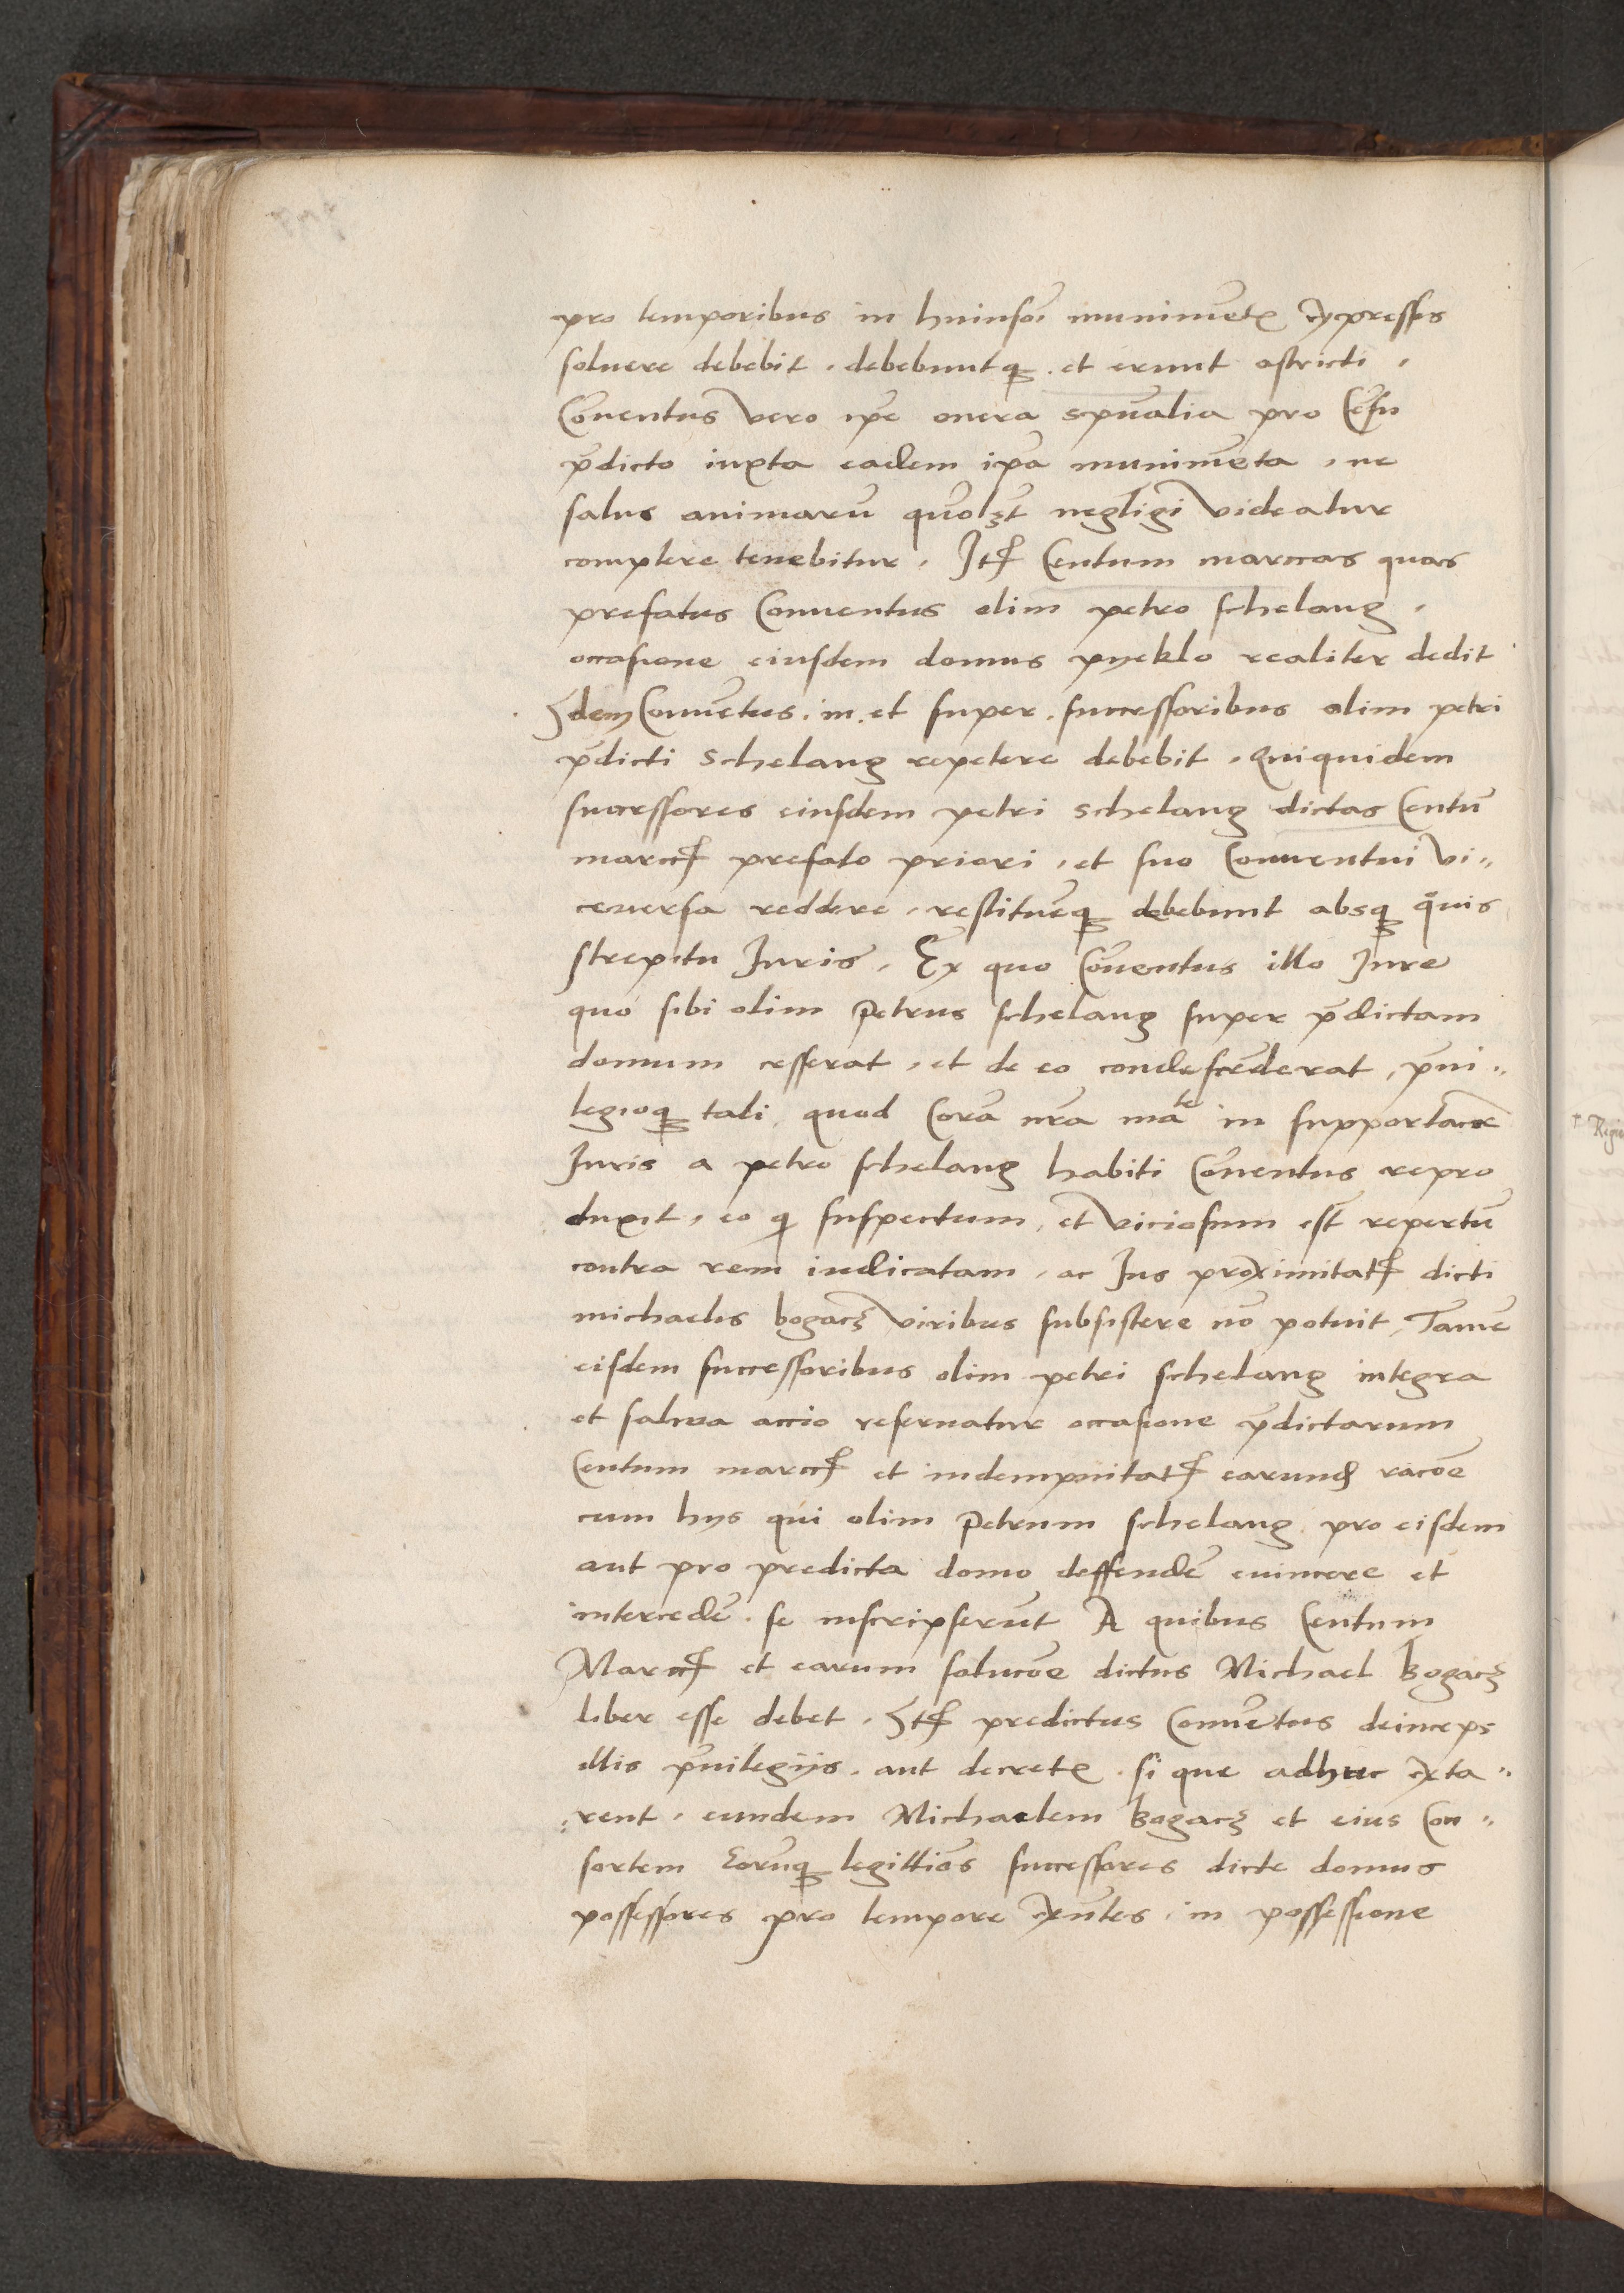 pro temporibus in huiusmōi munimētꝭ expressos
soluere debebit . debebuntqꝫ . et erunt astricti .
Cōuentus vero ipē onera spūalia pro Cēsu
p̄dicto iuxta eadem ipā munimēta . ne
salus animarū quōlꝫt negligi videatur
complere tenebitur . Itꝭ Centum marcas quas
prefatus Conuentus olim petro schelang .
occasione eiusdem domus pyeklo realiter dedit
Idem Conuētus . in . et super . successoribus olim petri
p̄dicti Schelang repetere debebit . Quiquidem
successores eiusdem petri Schelang dictas Centū
marcꝭ prefato priori . et suo Conuentui vi„
ceuersa reddere . restituēqꝫ debebunt absqꝫ q̄uis
strepitu Iuris . Ex quo Cōuentus illo Iure
quo sibi olim Petrus schelang super p̄dictam
domum cesserat . et de eo condescēderat , p̄ui„
legioqꝫ tali quod Corā nrā mate in supportacōe
Iuris a petro schelang habiti Cōuentus repro
duxit . eo ꝙ suspectum , et viciosum est repertū
contra rem iudicatam . ac Ius proximitatꝭ dicti
michaelis bogacz viribus subsistere nō potuit , Tamē
eisdem successoribus olim petri schelang integra
et salua accio reseruatur occasione p̄dictarum
Centum marcꝭ et indempnitatꝭ earundꝫ racōe
cum hys qui olim Petrum schelang pro eisdem
aut pro predicta domo deffendē euincere et
intercedē . se inscripserūt A quibus Centum
Marcꝭ et earum solucōe dictus Michael Bogacz
liber esse debet . Itꝭ predictus Conuētus deinceps
illis p̄uilegijs . aut decretꝭ . si que adhuc exta„
„rent . eundem Michaelem Bogacz et eius Con„
sortem Eorūqꝫ legittiōs successores dicte domus
possessores pro tempore exn̄tes . in possessione